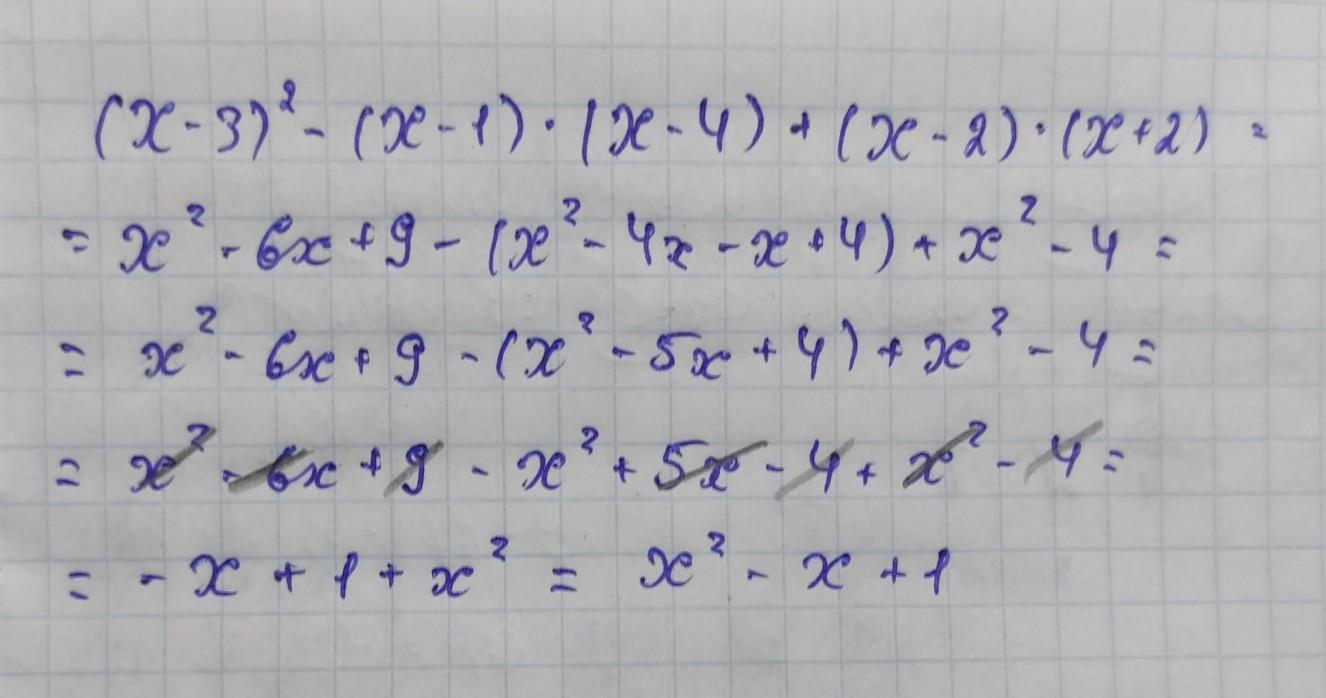 (x-3)² - (x-1)·(x-4) + (x-2)·(x+2) =
= x² - 6x + 9 - (x² - 4x - x + 4) + x² - 4 =
= x² - 6x + 9 - (x² - 5x + 4) + x² - 4 =
= x² - 6x + 9 - x² + 5x - 4 + x² - 4 =
= - x + 1 + x² = x² - x + 1